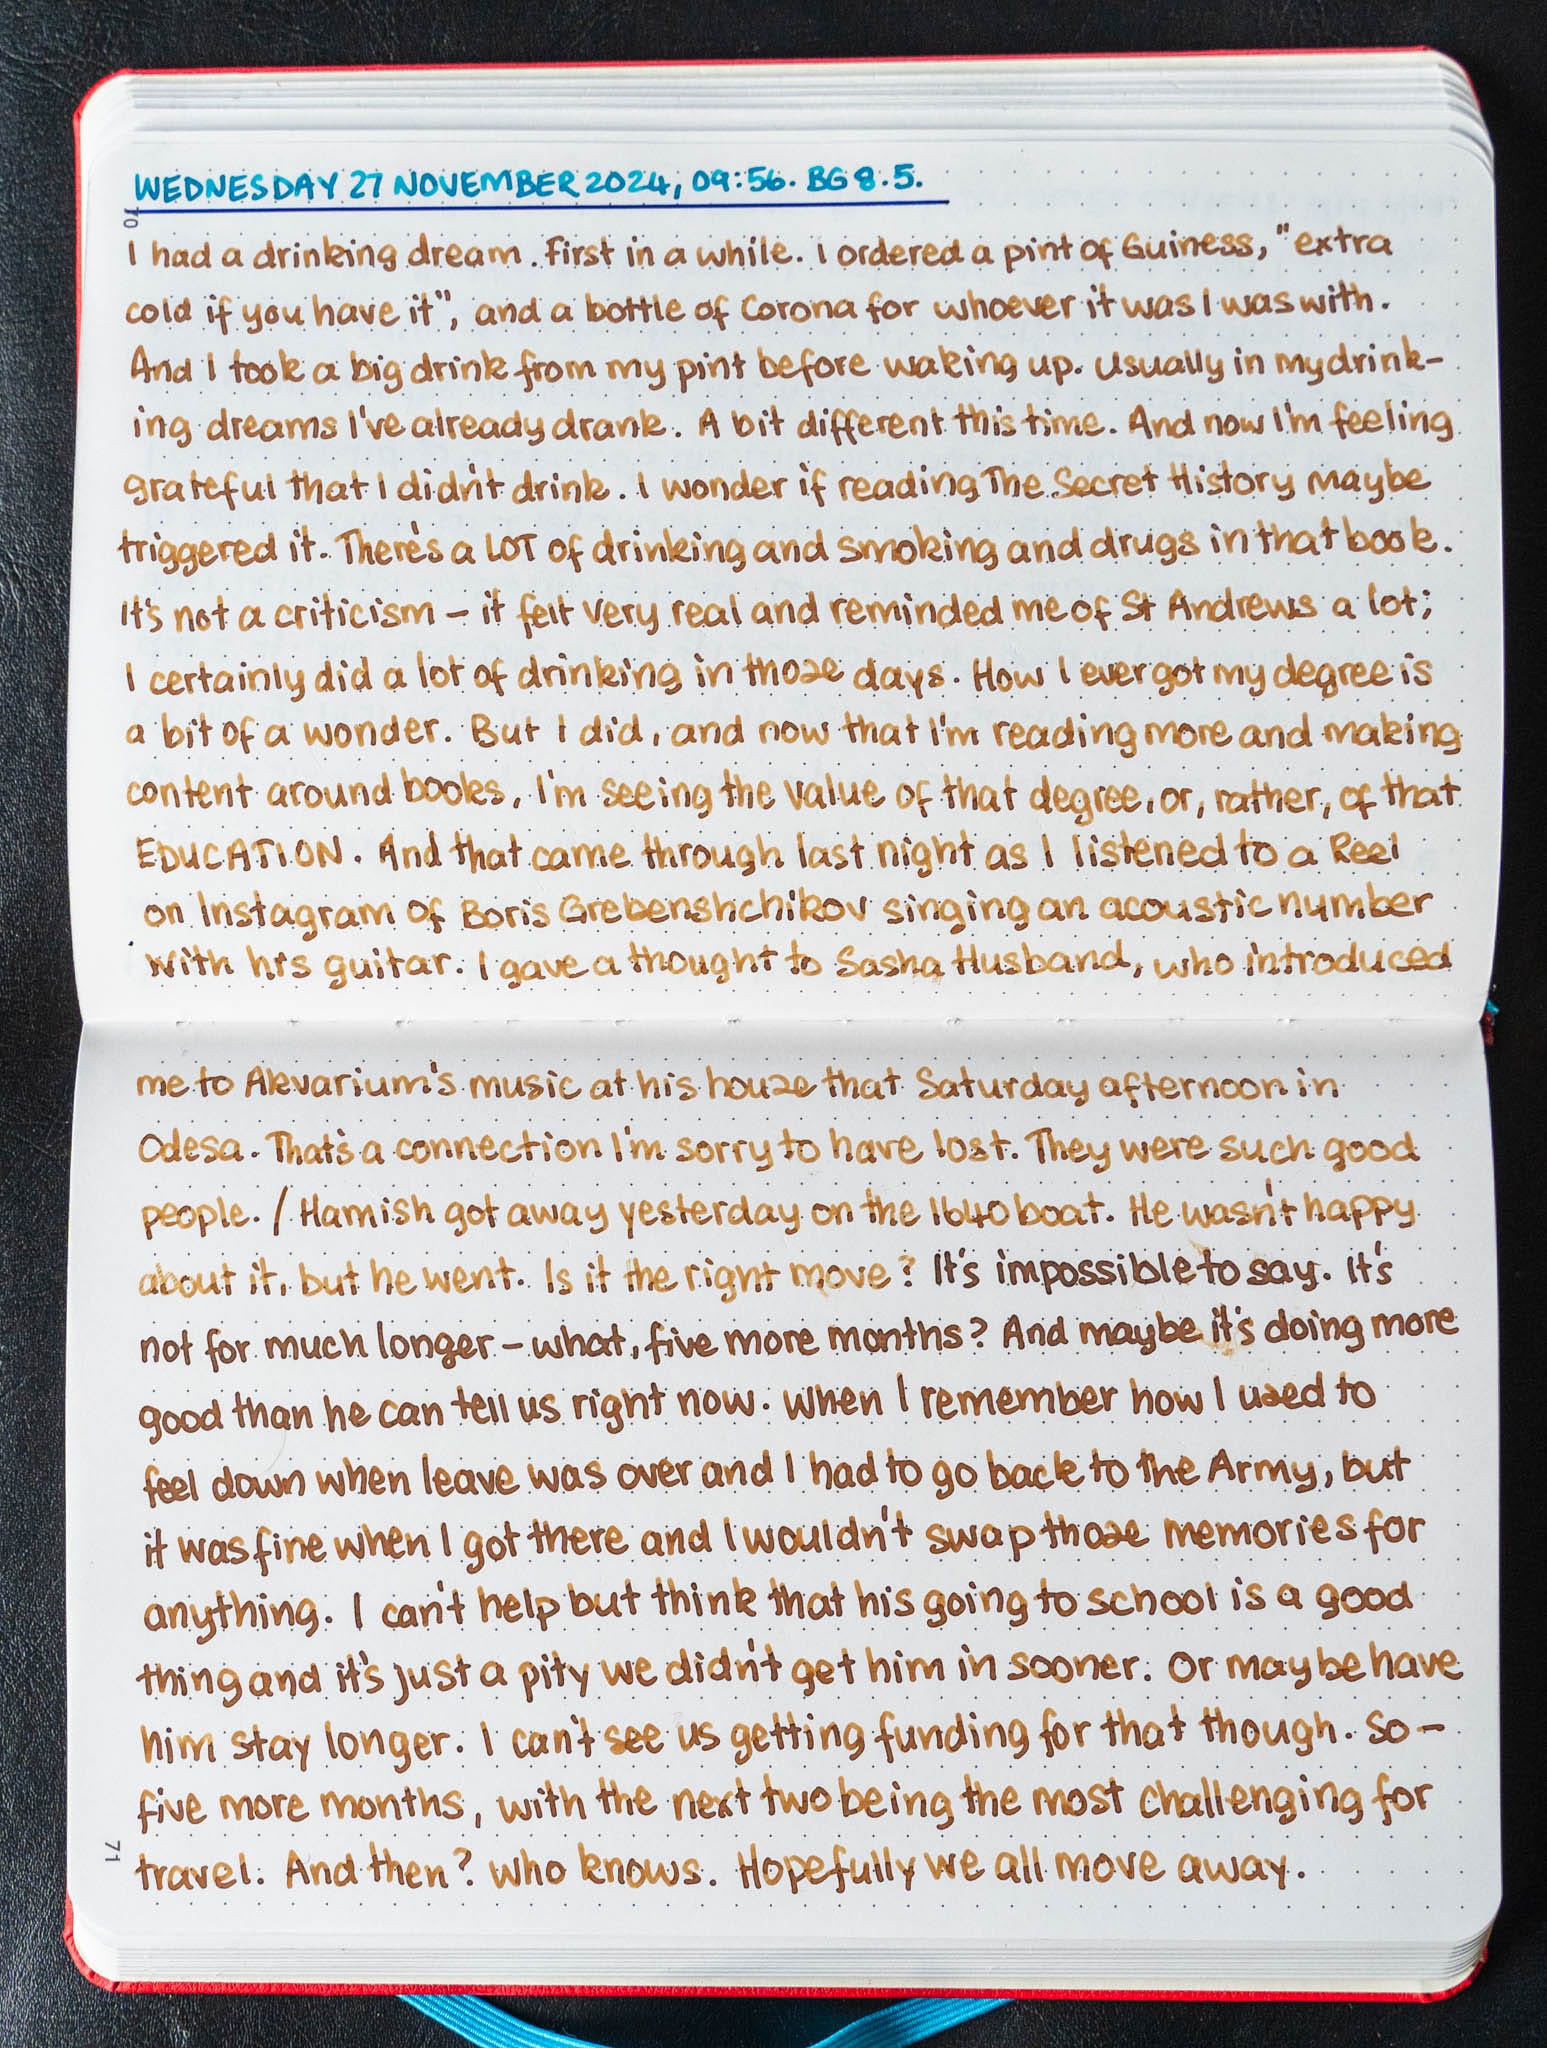 WEDNESDAY 27 NOVEMBER 2024, 09:56. BG 8.5.
70
I had a drinking dream. First in a while. I ordered a pint of Guiness, "extra
cold if you have it", and a bottle of Corona for whoever it was I was with.
And I took a big drink from my pint before waking up. Usually in my drink-
ing dreams I've already drank. A bit different this time. And now I'm feeling
grateful that I didn't drink. I wonder if reading The Secret History maybe
triggered it. There's a LOT of drinking and smoking and drugs in that book.
It's not a criticism – it felt very real and reminded me of St Andrews a lot;
I certainly did a lot of drinking in those days. How I ever got my degree is
a bit of a wonder. But I did, and now that I'm reading more and making
content around books, I'm seeing the value of that degree, or, rather, of that
EDUCATION. And that came through last night as I listened to a Reel
on Instagram of Boris Grebenshchikov singing an acoustic number
with his guitar. I gave a thought to Sasha Husband, who introduced
me to Akvarium's music at his house that Saturday afternoon in
Odesa. That's a connection I'm sorry to have lost. They were such good
people. / Hamish got away yesterday on the 1640 boat. He wasn't happy
about it, but he went. Is it the right move? It's impossible to say. It's
not for much longer – what, five more months? And maybe it's doing more
good than he can tell us right now. When I remember how I used to
feel down when leave was over and I had to go back to the Army, but
it was fine when I got there and I wouldn't swap those memories for
anything. I can't help but think that his going to school is a good
thing and it's just a pity we didn't get him in sooner. Or maybe have
him stay longer. I can't see us getting funding for that though. So –
five more months, with the next two being the most challenging for
travel. And then? Who knows. Hopefully we all move away.
71